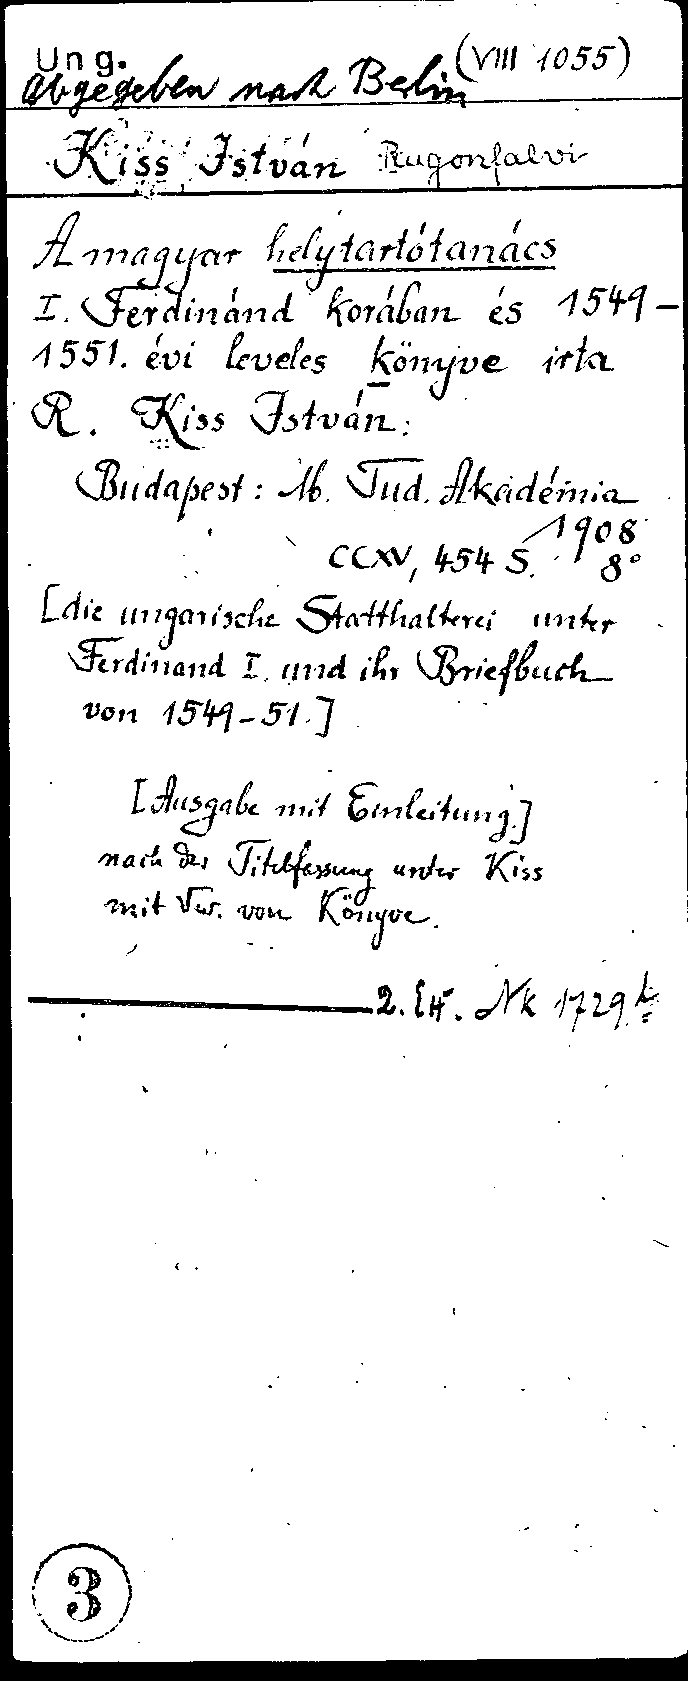 Ung. (VIII 1055)
abgegeben nach Berlin
Kiss István Rugonfalvi
A magyar helytartótanács
I. Ferdinánd korában és 1549-
1551. évi leveles könyve irta
R. Kiss István.
Budapest: M. Tud. Akadémia
1908
CCXV, 454 S. 8°
[die ungarische Statthalterei unter
Ferdinand I. und ihr Briefbuch
von 1549-51.]
[Ausgabe mit Einleitung.]
nach der Titelfassung unter Kiss
mit Verw. von Könyve.
2. Ex. Nk 1729
3